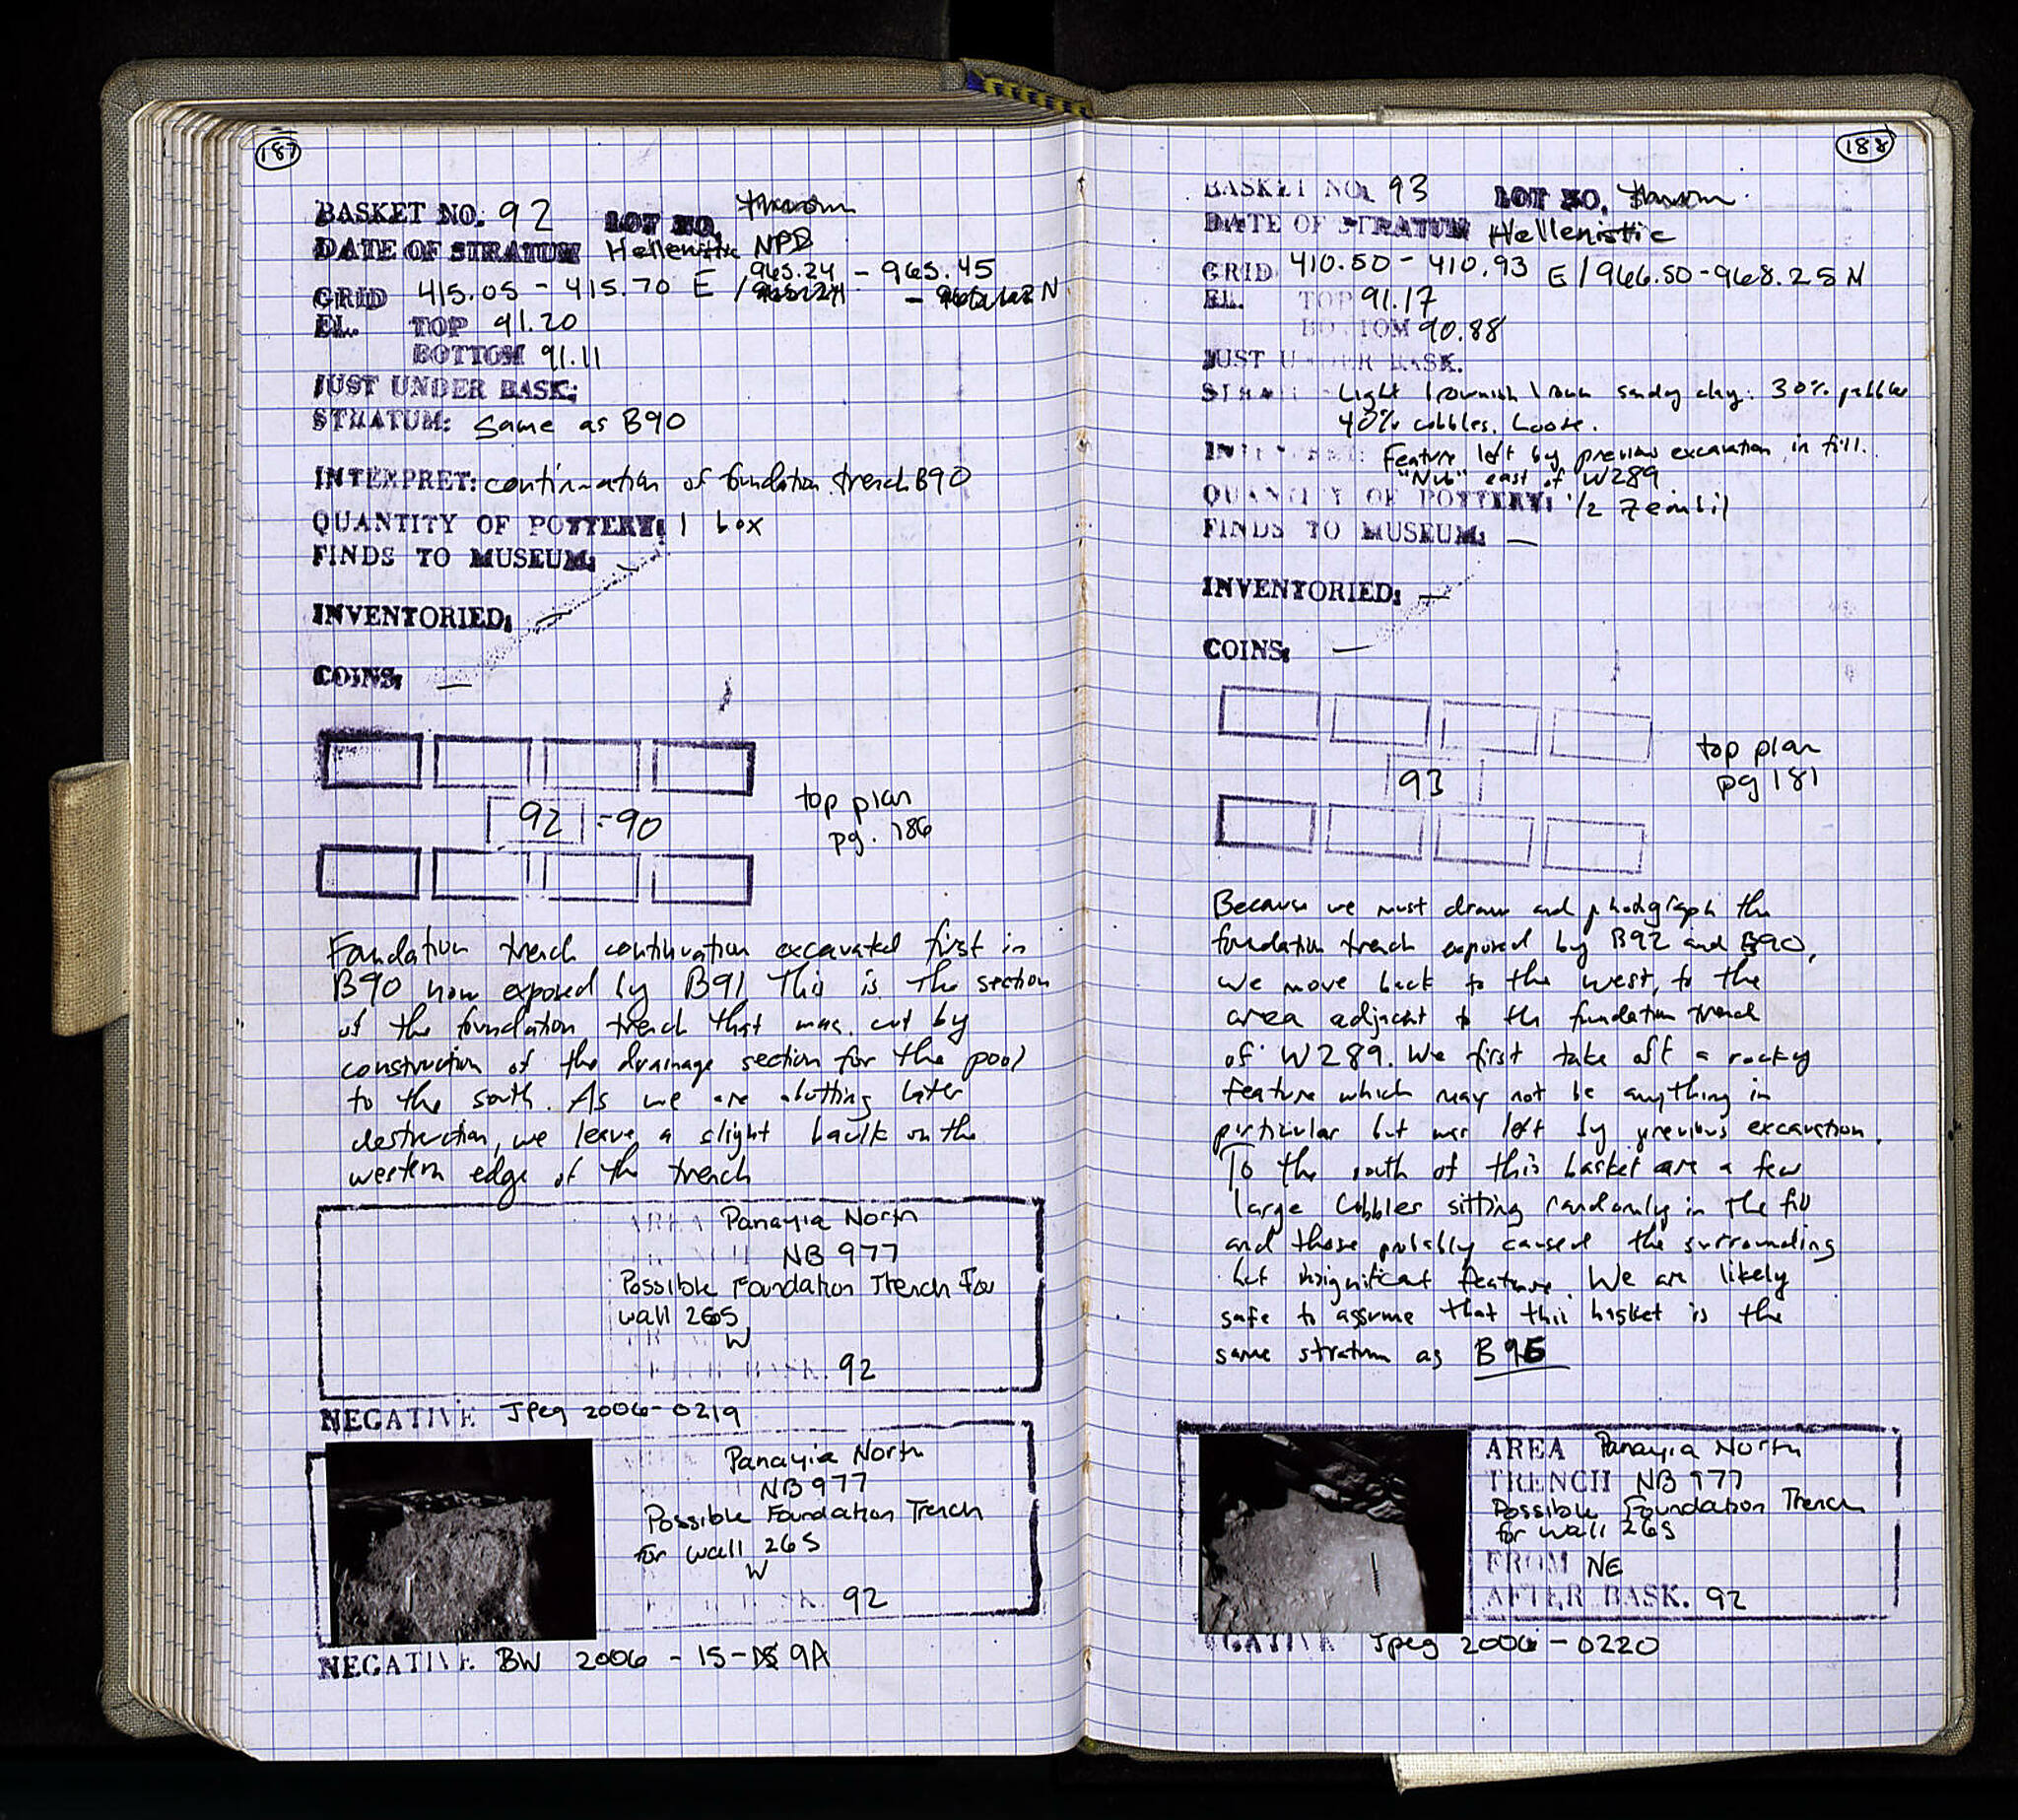 187
BASKET NO. 92 LOT NO.
DATE OF STRATUM Hellenistic NPD
965.24 - 965.45
GRID 415.05 - 415.70 E / N
EL. TOP 91.20
BOTTOM 91.11
JUST UNDER BASK:
STRATUM: Same as B90
INTERPRET: continuation of foundation trench B90
QUANTITY OF POTTERY: 1 box
FINDS TO MUSEUM: —
INVENTORIED: —
COINS: —
92 = 90
top plan
pg. 186
Foundation trench continuation excavated first in
B90 now exposed by B91 This is the section
of the foundation trench that was cut by
construction of the drainage section for the pool
to the south. As we are abutting later
destruction, we leave a slight baulk on the
western edge of the trench
AREA Panayia North
NB 977
Possible Foundation Trench For
wall 265
W
AFTER BASK. 92
NEGATIVE Jpeg 2006-0219
Panayia North
NB 977
Possible Foundation Trench
for wall 265
W
92
NEGATIVE BW 2006 - 15 - 9A
188
BASKET NO. 93 LOT NO.
DATE OF STRATUM Hellenistic
GRID 410.50 - 410.93 E / 966.50 - 968.25 N
EL. TOP 91.17
BOTTOM 90.88
JUST UNDER BASK.
STRAT Light brownish brown sandy clay. 30% pebbles
40% cobbles. Loose.
INTERPRET: Feature left by previous excavation in fill.
"Nub" east of W289
QUANTITY OF POTTERY: 1/2 Zembil
FINDS TO MUSEUM: —
INVENTORIED: —
COINS: —
93
top plan
pg 181
Because we must draw and photograph the
foundation trench exposed by B92 and B90,
we move back to the west, to the
area adjacent to the foundation trench
of W289. We first take off a rocky
feature which may not be anything in
particular but was left by previous excavation.
To the south of this basket are a few
large cobbles sitting randomly in the fill
and those probably caused the surrounding
but insignificant feature. We are likely
safe to assume that this basket is the
same stratum as B95
AREA Panayia North
TRENCH NB 977
Possible Foundation Trench
for wall 265
FROM NE
AFTER BASK. 92
NEGATIVE Jpeg 2006 - 0220